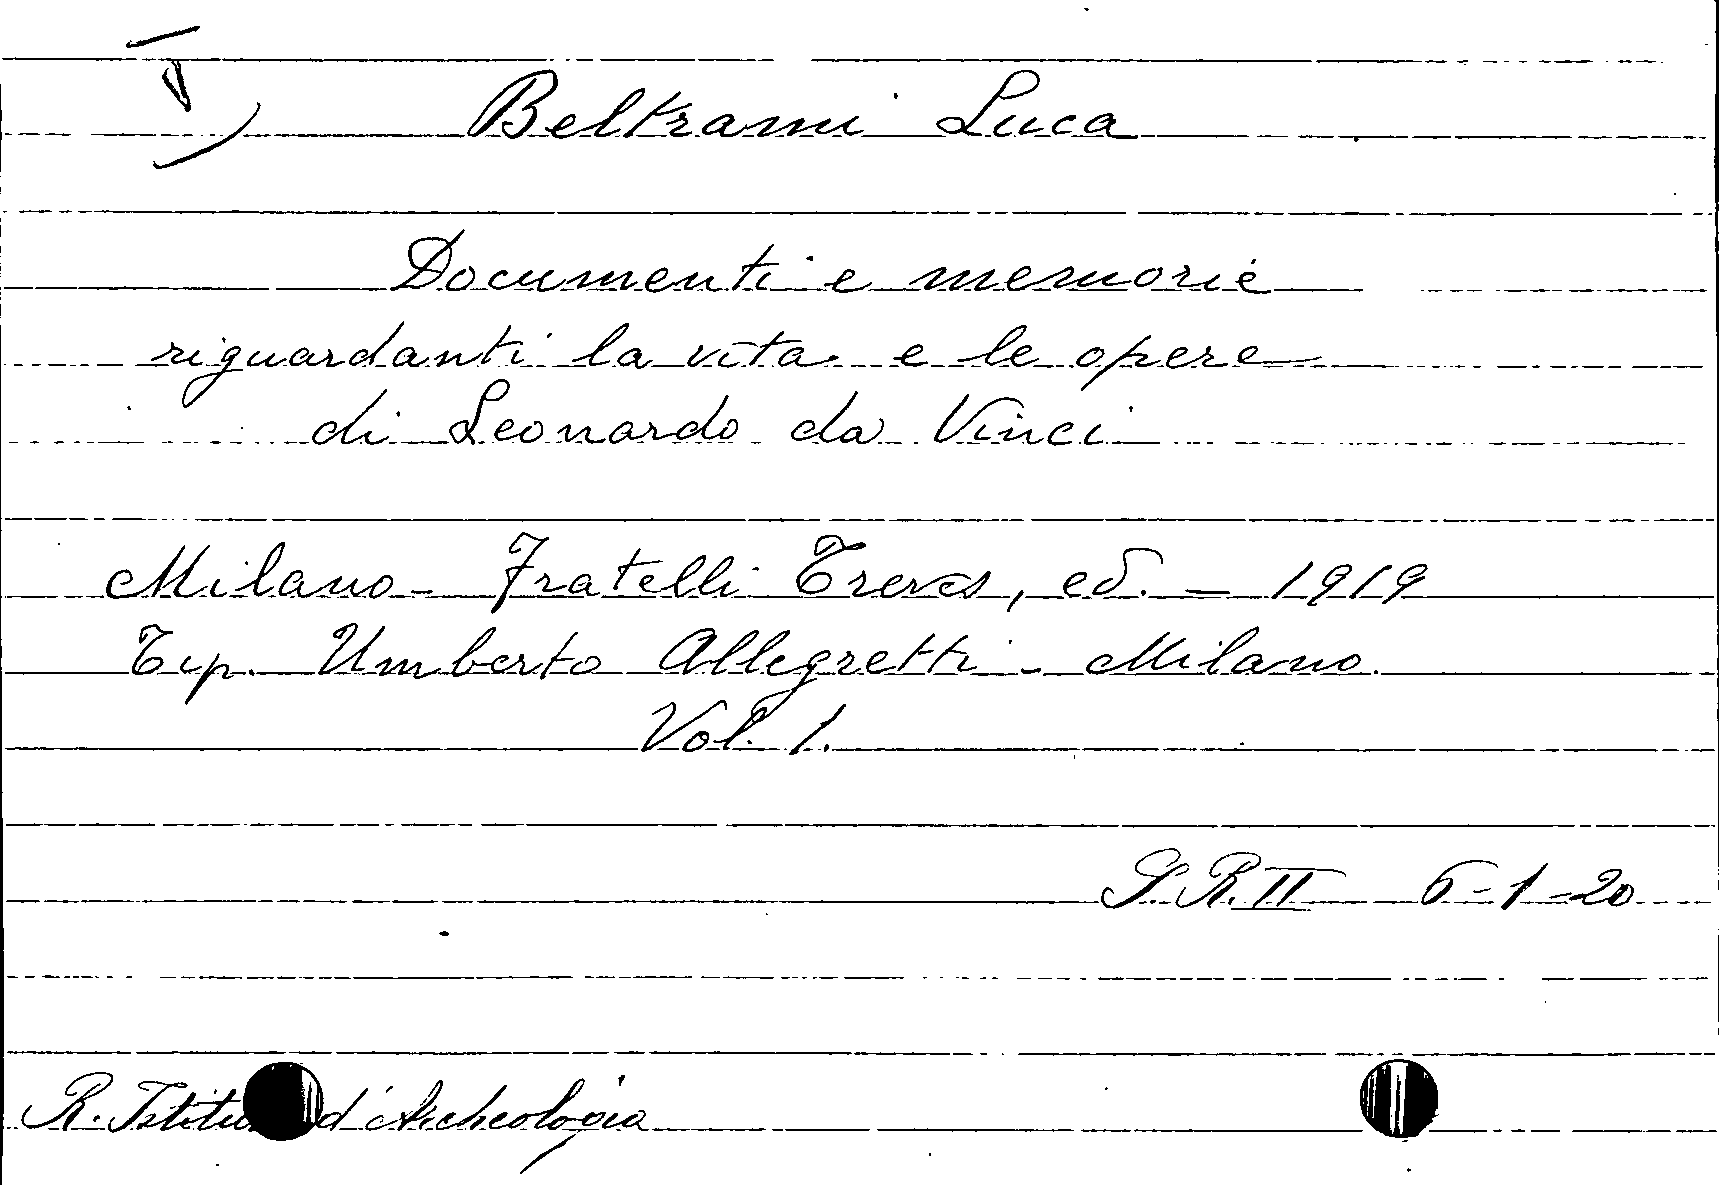 Beltrami Luca
Documenti e memorie
riguardanti la vita e le opere
di Leonardo da Vinci
Milano - Fratelli Treves, ed. - 1919
Tip. Umberto Allegretti - Milano.
Vol. 1.
S. R. II 6-1-20
R. d'Archeologia